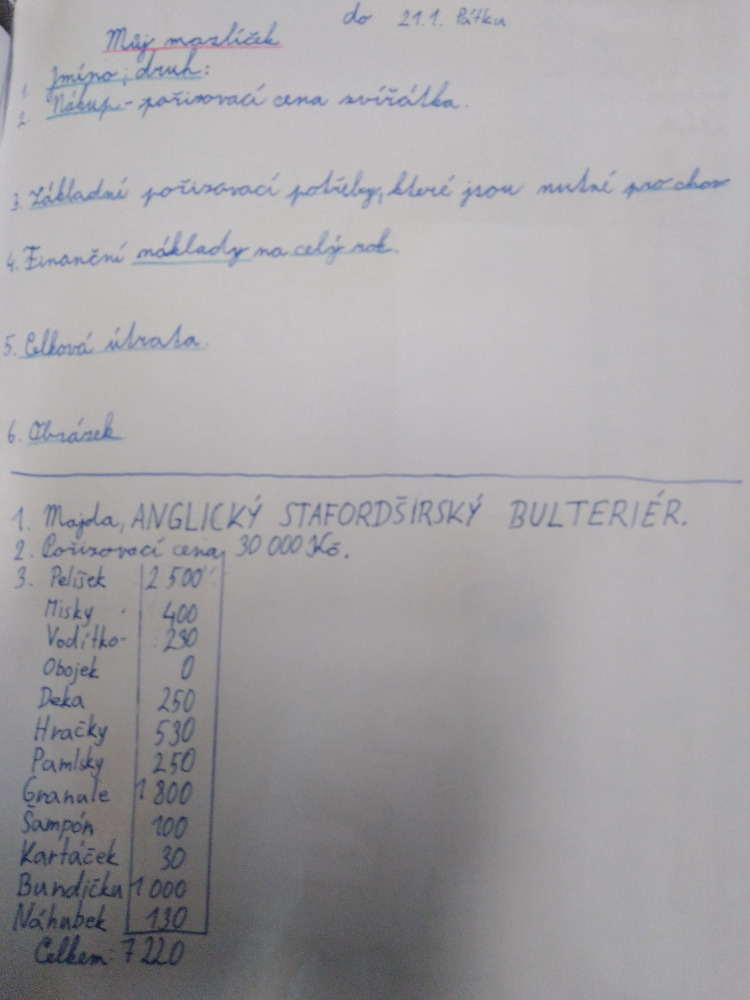 do 21.1. Pátku
Můj mazlíček
1. Jméno, druh:
2. Nákup - pořizovací cena zvířátka.
3. Základné pořizovací potřeby, které jsou nutné pro chov
4. Finanční náklady na celý rok.
5. Celková útrata.
6. Obrázek
1. Majda, ANGLICKÝ STAFORDŠIRSKÝ BULTERIÉR.
2. Pořizovací cena, 30 000 Kč.
3. Pelíšek 2 500
Misky 400
Vodítko- 230
Obojek 0
Deka 250
Hračky 530
Pamlsky 250
Granule 1 800
Šampón 100
Kartáček 30
Bundička 1 000
Náhubek 130
Celkem: 7 220